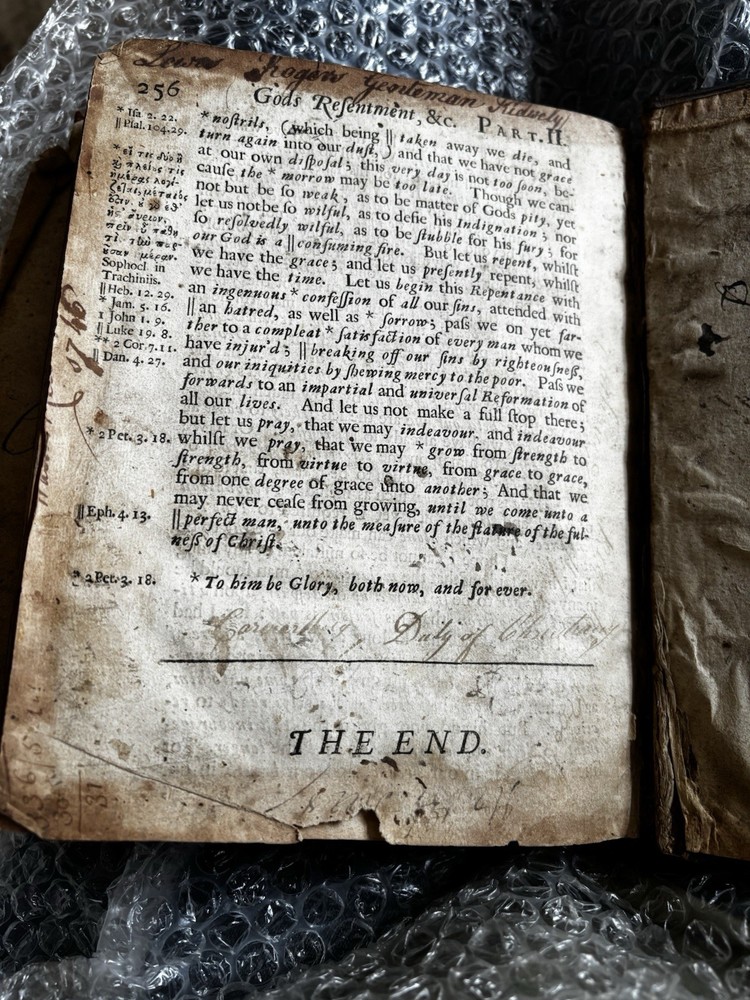 Lewes Rogers Gentleman
256 Gods Reſentment, &c. PART. II.
* Iſa. 2. 22.
|| Pſal. 104. 29.
Sophocl in
Trachiniis.
|| Heb. 12. 29.
* Jam. 5. 16.
1 John 1. 9.
|| Luke 19. 8.
** 2 Cor. 7. 11.
|| Dan. 4. 27.
* 2 Pet. 3. 18.
|| Eph. 4. 13.
* 2 Pet. 3. 18.
* noſtrils, (which being || taken away we die, and
turn again into our duſt,) and that we have not grace
at our own diſpoſal; this very day is not too ſoon, be-
cauſe the * morrow may be too late. Though we can-
not but be ſo weak, as to be matter of Gods pity, yet
let us not be ſo wilful, as to defie his Indignation; nor
ſo reſolvedly wilful, as to be ſtubble for his fury; for
our God is a || conſuming fire. But let us repent, whilſt
we have the grace; and let us preſently repent, whilſt
we have the time. Let us begin this Repentance with
an ingenuous * confeſſion of all our ſins, attended with
|| an hatred, as well as * ſorrow; paſs we on yet far-
ther to a compleat * ſatisfaction of every man whom we
have injur'd; || breaking off our ſins by righteouſneſs,
and our iniquities by ſhewing mercy to the poor. Paſs we
forwards to an impartial and univerſal Reformation of
all our lives. And let us not make a full ſtop there;
but let us pray, that we may indeavour, and indeavour
whilſt we pray, that we may * grow from ſtrength to
ſtrength, from virtue to virtue, from grace to grace,
from one degree of grace unto another; And that we
may never ceaſe from growing, until we come unto a
|| perfect man, unto the meaſure of the ſtature of the ful-
neſs of Chriſt.
* To him be Glory, both now, and for ever.
Duty of
THE END.